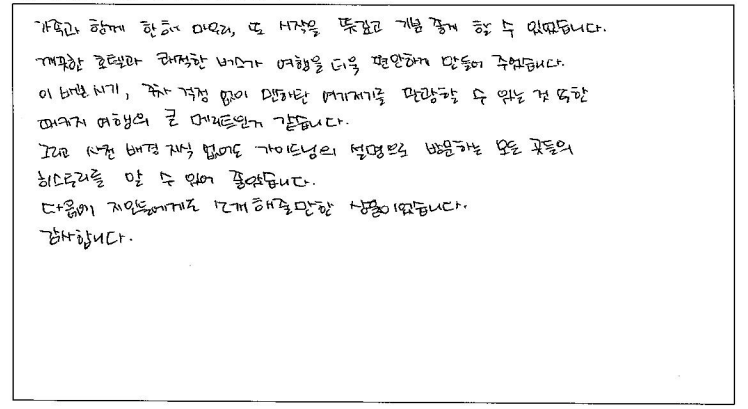 가족과 함께 한해 마무리, 또 시작을 뜻깊고 기분 좋게 할 수 있었습니다.
깨끗한 호텔과 쾌적한 버스가 여행을 더욱 편안하게 만들어 주었습니다.
이 바쁜 시기, 주차 걱정 없이 맨하탄 여기저기를 관광할 수 있는 것 또한
패키지 여행의 큰 메리트인거 같습니다.
그리고 사전 배경 지식 없어도 가이드님의 설명으로 방문하는 모든 곳들의
히스토리를 알 수 있어 좋았습니다.
다음에 지인들에게도 소개해줄만한 상품이었습니다.
감사합니다.